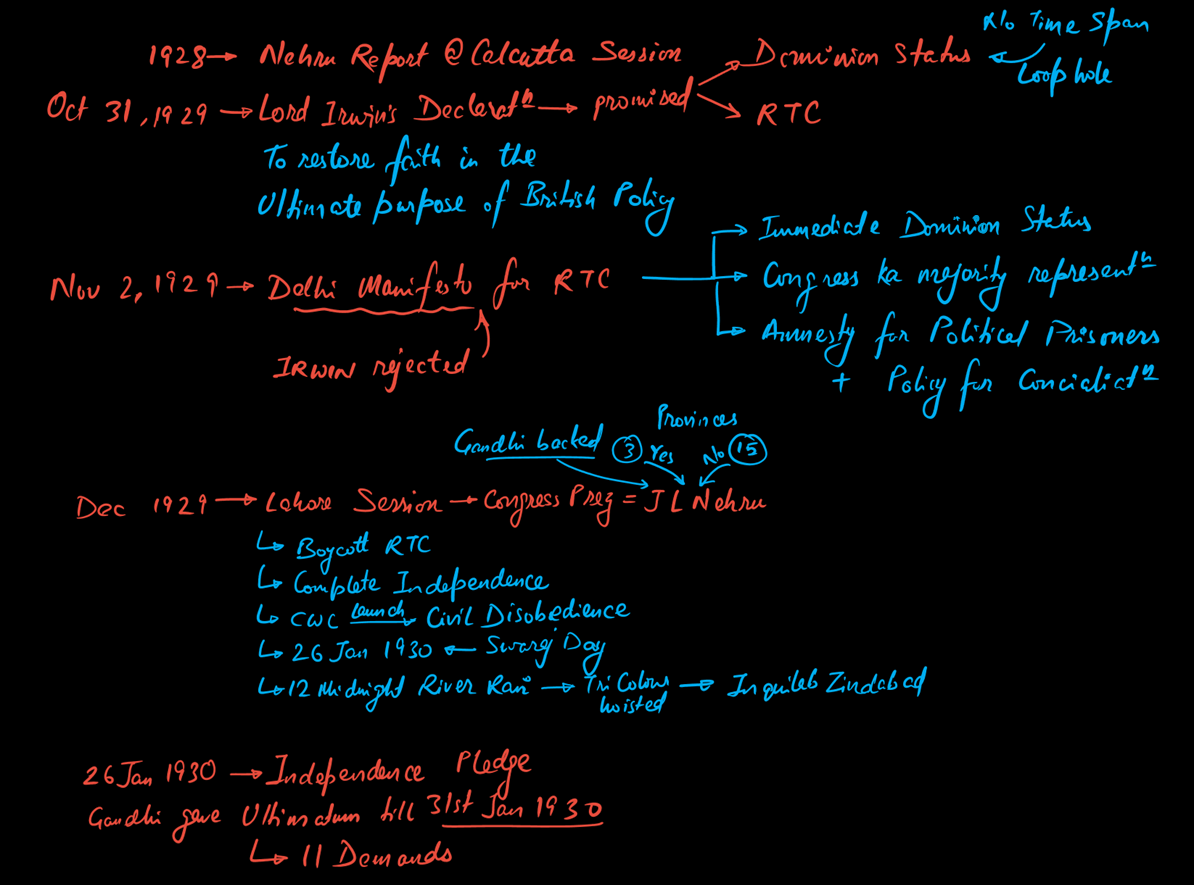 W/o Time Span
1928 → Nehru Report @ Calcutta Session
Dominion Status
Loophole
Oct 31, 1929 → Lord Irwin's Declaratn → promised
RTC
To restore faith in the
Ultimate purpose of British Policy
Immediate Dominion Status
Nov 2, 1929 → Delhi Manifesto for RTC
Congress ka majority representn
Amnesty for Political Prisoners
IRWIN rejected
+ Policy for Conciliatn
Provinces
Gandhi backed 3 Yes No 15
Dec 1929 → Lahore Session → Congress Prez = J L Nehru
↳ Boycott RTC
↳ Complete Independence
↳ CWC launch → Civil Disobedience
↳ 26 Jan 1930 ← Swaraj Day
↳ 12 Midnight River Ravi → Tri Colour → Inquilab Zindabad
hoisted
26 Jan 1930 → Independence Pledge
Gandhi gave Ultimatum till 31st Jan 1930
↳ 11 Demands